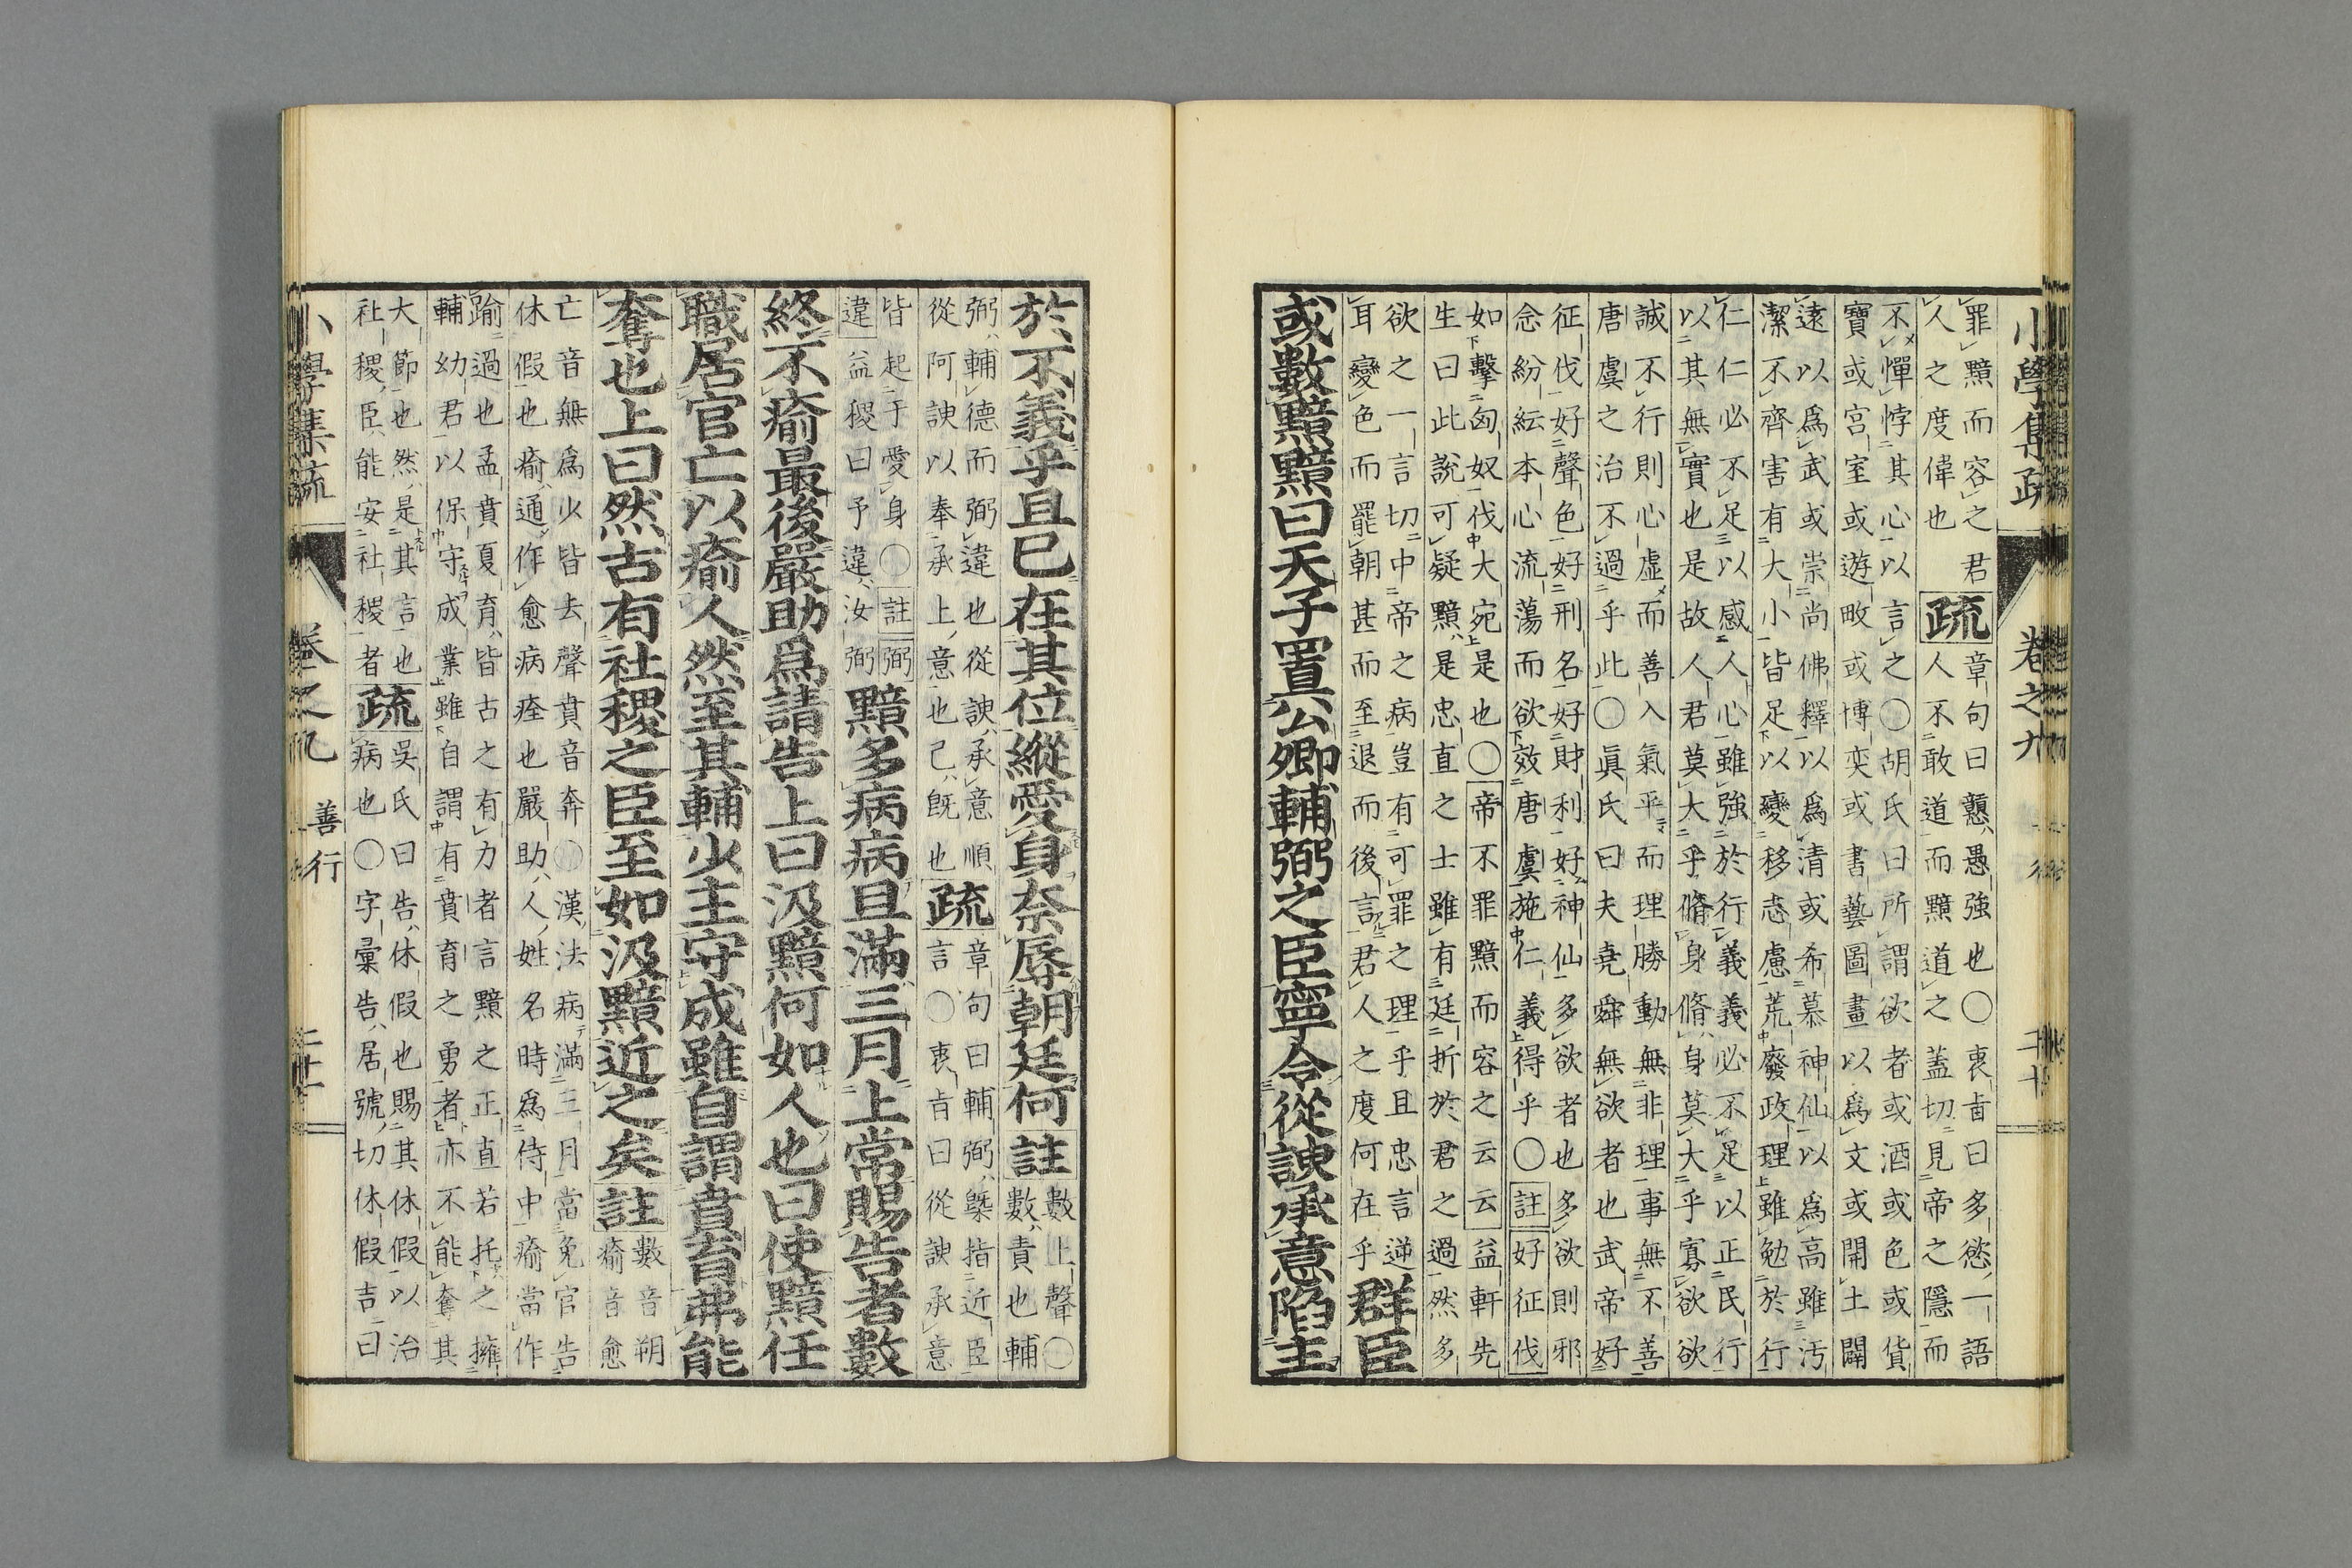 罪黯而容之君
人之度偉也
疏
章句曰戇愚強也〇衷旨曰多慾一語
人不敢道而黯道之蓋切見帝之隱而
不憚悖其心以言之〇胡氏曰所謂欲者或酒或色或貨
寶或宮室或遊畋或博奕或書藝圖畫以爲文或開土闢
遠以爲武或崇尚佛釋以爲清或希慕神仙以爲高雖汚
潔不齊害有大小皆足以變移志慮荒廢政理雖勉於行
仁仁必不足以感人心雖強於行義義必不足以正民行
以其無實也是故人君莫大乎脩身脩身莫大乎寡欲欲
誠不行則心虛而善入氣平而理勝動無非理事無不善
唐虞之治不過乎此〇眞氏曰夫堯舜無欲者也武帝好
征伐好聲色好刑名好財利好神仙多欲者也多欲則邪
念紛紜本心流蕩而欲效唐虞施仁義得乎〇註好征伐
如擊匈奴伐大宛是也〇帝不罪黯而容之云云益軒先
生曰此說可疑黯是忠直之士雖有廷折於君之過然多
欲之一言切中帝之病豈有可罪之理乎且忠言逆
耳變色而罷朝甚而至退而後言君人之度何在乎
群臣
或數黯黯曰天子置公卿輔弼之臣寧令從諛承意陷主
小學集疏 卷之九
於不義乎且已在其位縱愛身奈辱朝廷何
註
數上聲〇
數責也輔
弼輔德而弼違也從諛承意順
從阿諛以奉承上意也己旣也
疏
章句曰輔弼槩指近臣
言〇衷旨曰從諛承意
皆起于愛身〇註弼
違益稷曰予違汝弼
黯多病病且滿三月上常賜告者數
終不瘉最後嚴助爲請告上曰汲黯何如人也曰使黯任
職居官亡以瘉人然至其輔少主守成雖自謂賁育弗能
奪也上曰然古有社稷之臣至如汲黯近之矣
註
數音朔
瘉音愈
亡音無爲少皆去聲賁音奔〇漢法病滿三月當免官告
休假也瘉通作愈病痊也嚴助人姓名時爲侍中瘉當作
踰過也孟賁夏育皆古之有力者言黯之正直若托之擁
輔幼君以保守成業雖自謂有賁育之勇者亦不能奪其
大節也然是其言也
社稷臣能安社稷者
疏
吳氏曰告休假也賜其休假以治
病也〇字彙告居號切休假吉曰
小學集疏 卷之九 善行